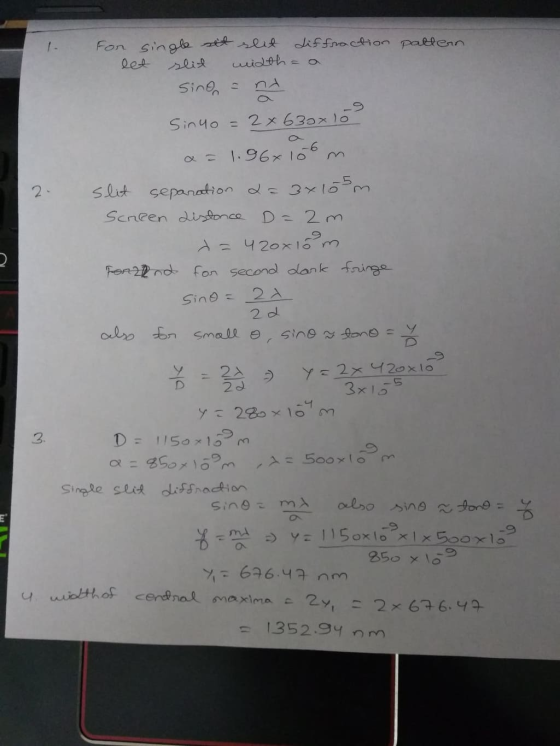 1. For single slit diffraction pattern
let slit width = a
sinθn = nλ/a
Sin40 = 2×630×10^-9/a
a = 1.96×10^-6 m
2. Slit separation d = 3×10^-5 m
Screen distance D = 2 m
λ = 420×10^-9 m
for second dark fringe
sinθ = 2λ/2d
also for small θ, sinθ ≈ tanθ = y/D
y/D = 2λ/2d ⇒ y = 2×420×10^-9/3×10^-5
y = 280×10^-4 m
3. D = 1150×10^-9 m
a = 850×10^-9 m, λ = 500×10^-9 m
Single slit diffraction
sinθ = mλ/a also sinθ ≈ tanθ = y/D
y/D = mλ/a ⇒ y = 1150×10^-9×1×500×10^-9/850×10^-9
y₁ = 676.47 nm
4. width of central maxima = 2y₁ = 2×676.47
= 1352.94 nm